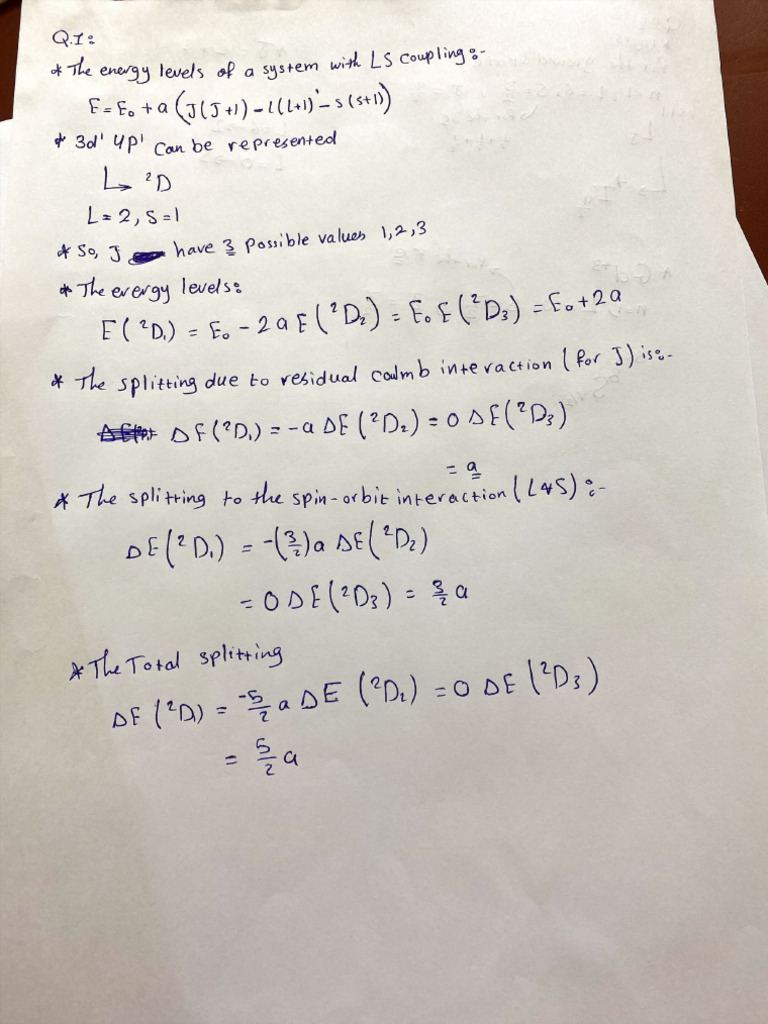 Q.I:
* The energy levels of a system with LS coupling:-
E = E₀ + a (J(J+1) - l(l+1) - s(s+1))
* 3d' 4p' can be represented
↳ ²D
L = 2, S = 1
* So, J have 3 possible values 1,2,3
* The evergy levels:
E(²D₁) = E₀ - 2a E(²D₂) = E₀ E(²D₃) = E₀ + 2a
* The splitting due to residual coulmb interaction (for J) is:-
ΔE(²D₁) = -a ΔE(²D₂) = 0 ΔE(²D₃)
= a
* The splitting to the spin-orbit interaction (L&S):-
ΔE(²D₁) = -(3/2)a ΔE(²D₂)
= 0 ΔE(²D₃) = 3/2 a
* The Total splitting
ΔE(²D₁) = -5/2 a ΔE (²D₂) = 0 ΔE (²D₃)
= 5/2 a